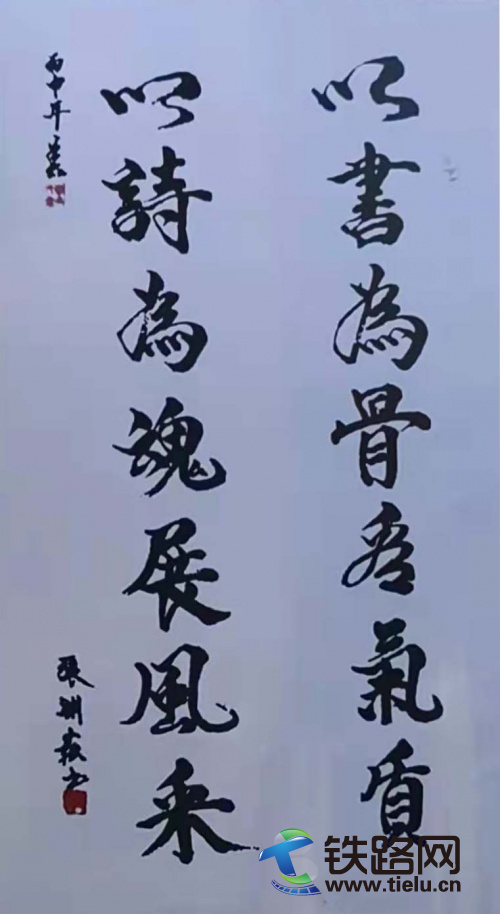 以書為骨氣質
以詩為魂展風采
丙申年
張
铁路网
www.tielu.cn